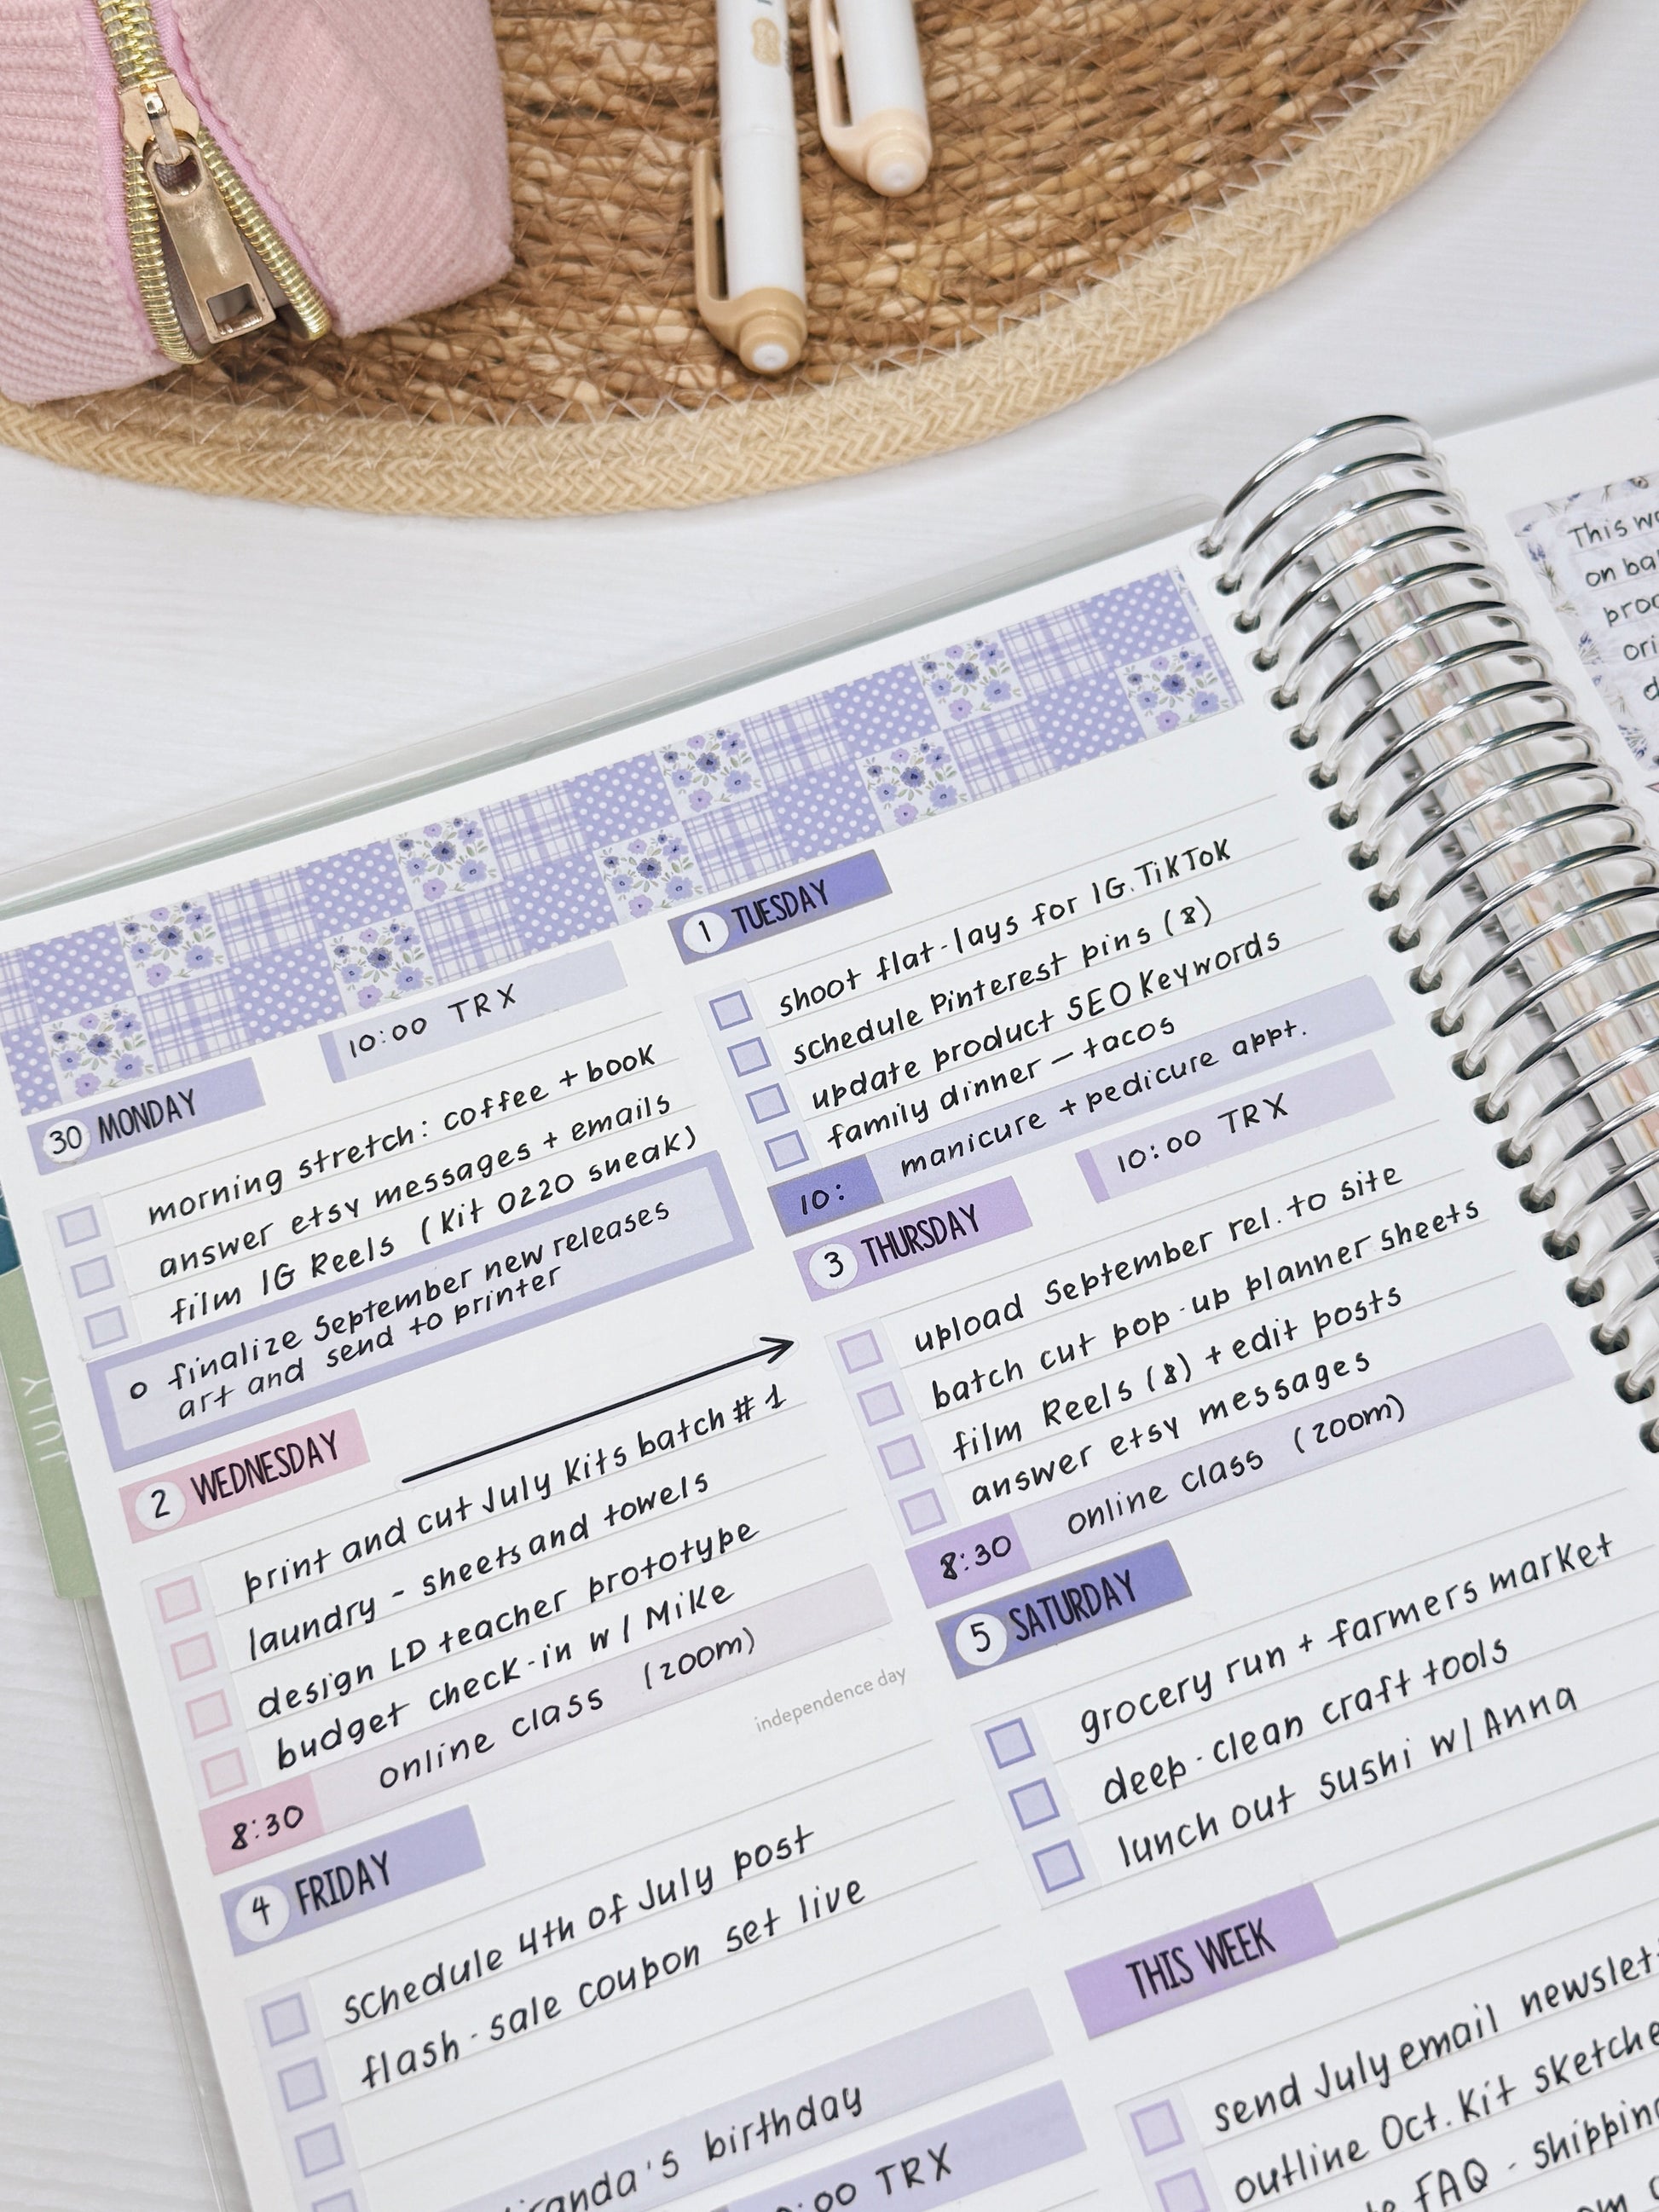 JULY
30 MONDAY
10:00 TRX
morning stretch: coffee + book
answer etsy messages + emails
film IG Reels (Kit 0220 sneak)
o finalize September new releases
art and send to printer
1 TUESDAY
shoot flat-lays for IG.TikTok
schedule Pinterest pins (8)
update product SEO Keywords
family dinner – tacos
10: manicure + pedicure appt.
2 WEDNESDAY
print and cut July Kits batch #1
laundry - sheets and towels
design LD teacher prototype
budget check-in w/ Mike
8:30 online class (zoom)
3 THURSDAY
10:00 TRX
upload September rel. to site
batch cut pop-up planner sheets
film Reels (8) + edit posts
answer etsy messages
8:30 online class (zoom)
4 FRIDAY
independence day
schedule 4th of July post
flash-sale coupon set live
birthday
:00 TRX
5 SATURDAY
grocery run + farmers market
deep-clean craft tools
lunch out sushi w/ Anna
THIS WEEK
send July email
outline Oct. Kit
FAQ -
This
on